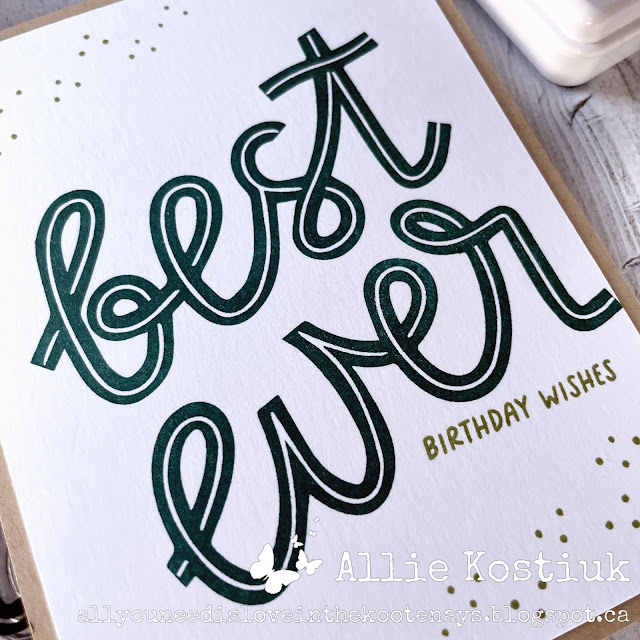 best
ever
BIRTHDAY WISHES
Allie Kostiuk
allyouneedisloveinthekootenays.blogspot.ca